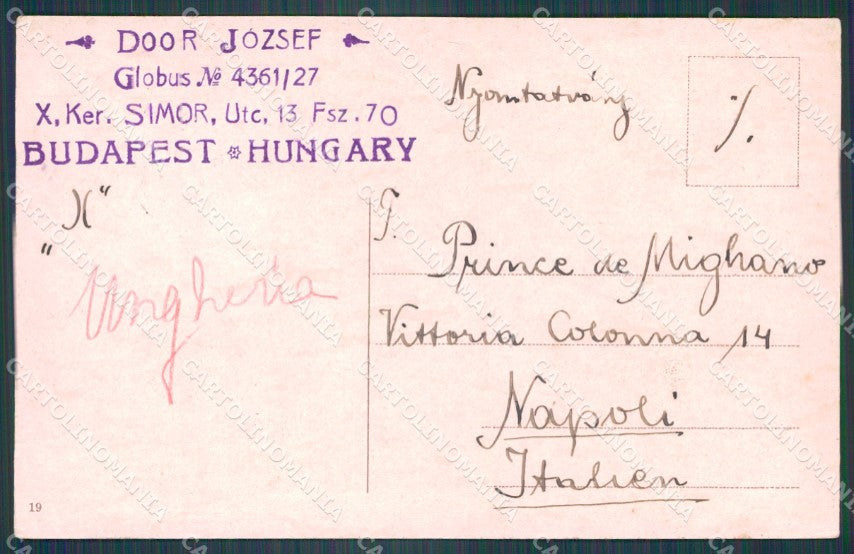 DOOR JÓZSEF
Globus № 4361/27
X, Ker. SIMOR, Utc, 13 Fsz. 70
BUDAPEST HUNGARY
Nyomtatvány
%.
„X“
Ungheria
T.
Prince de Mighano
Vittoria Colonna 14
Napoli
Italien
19
CARTOLINOMANIA